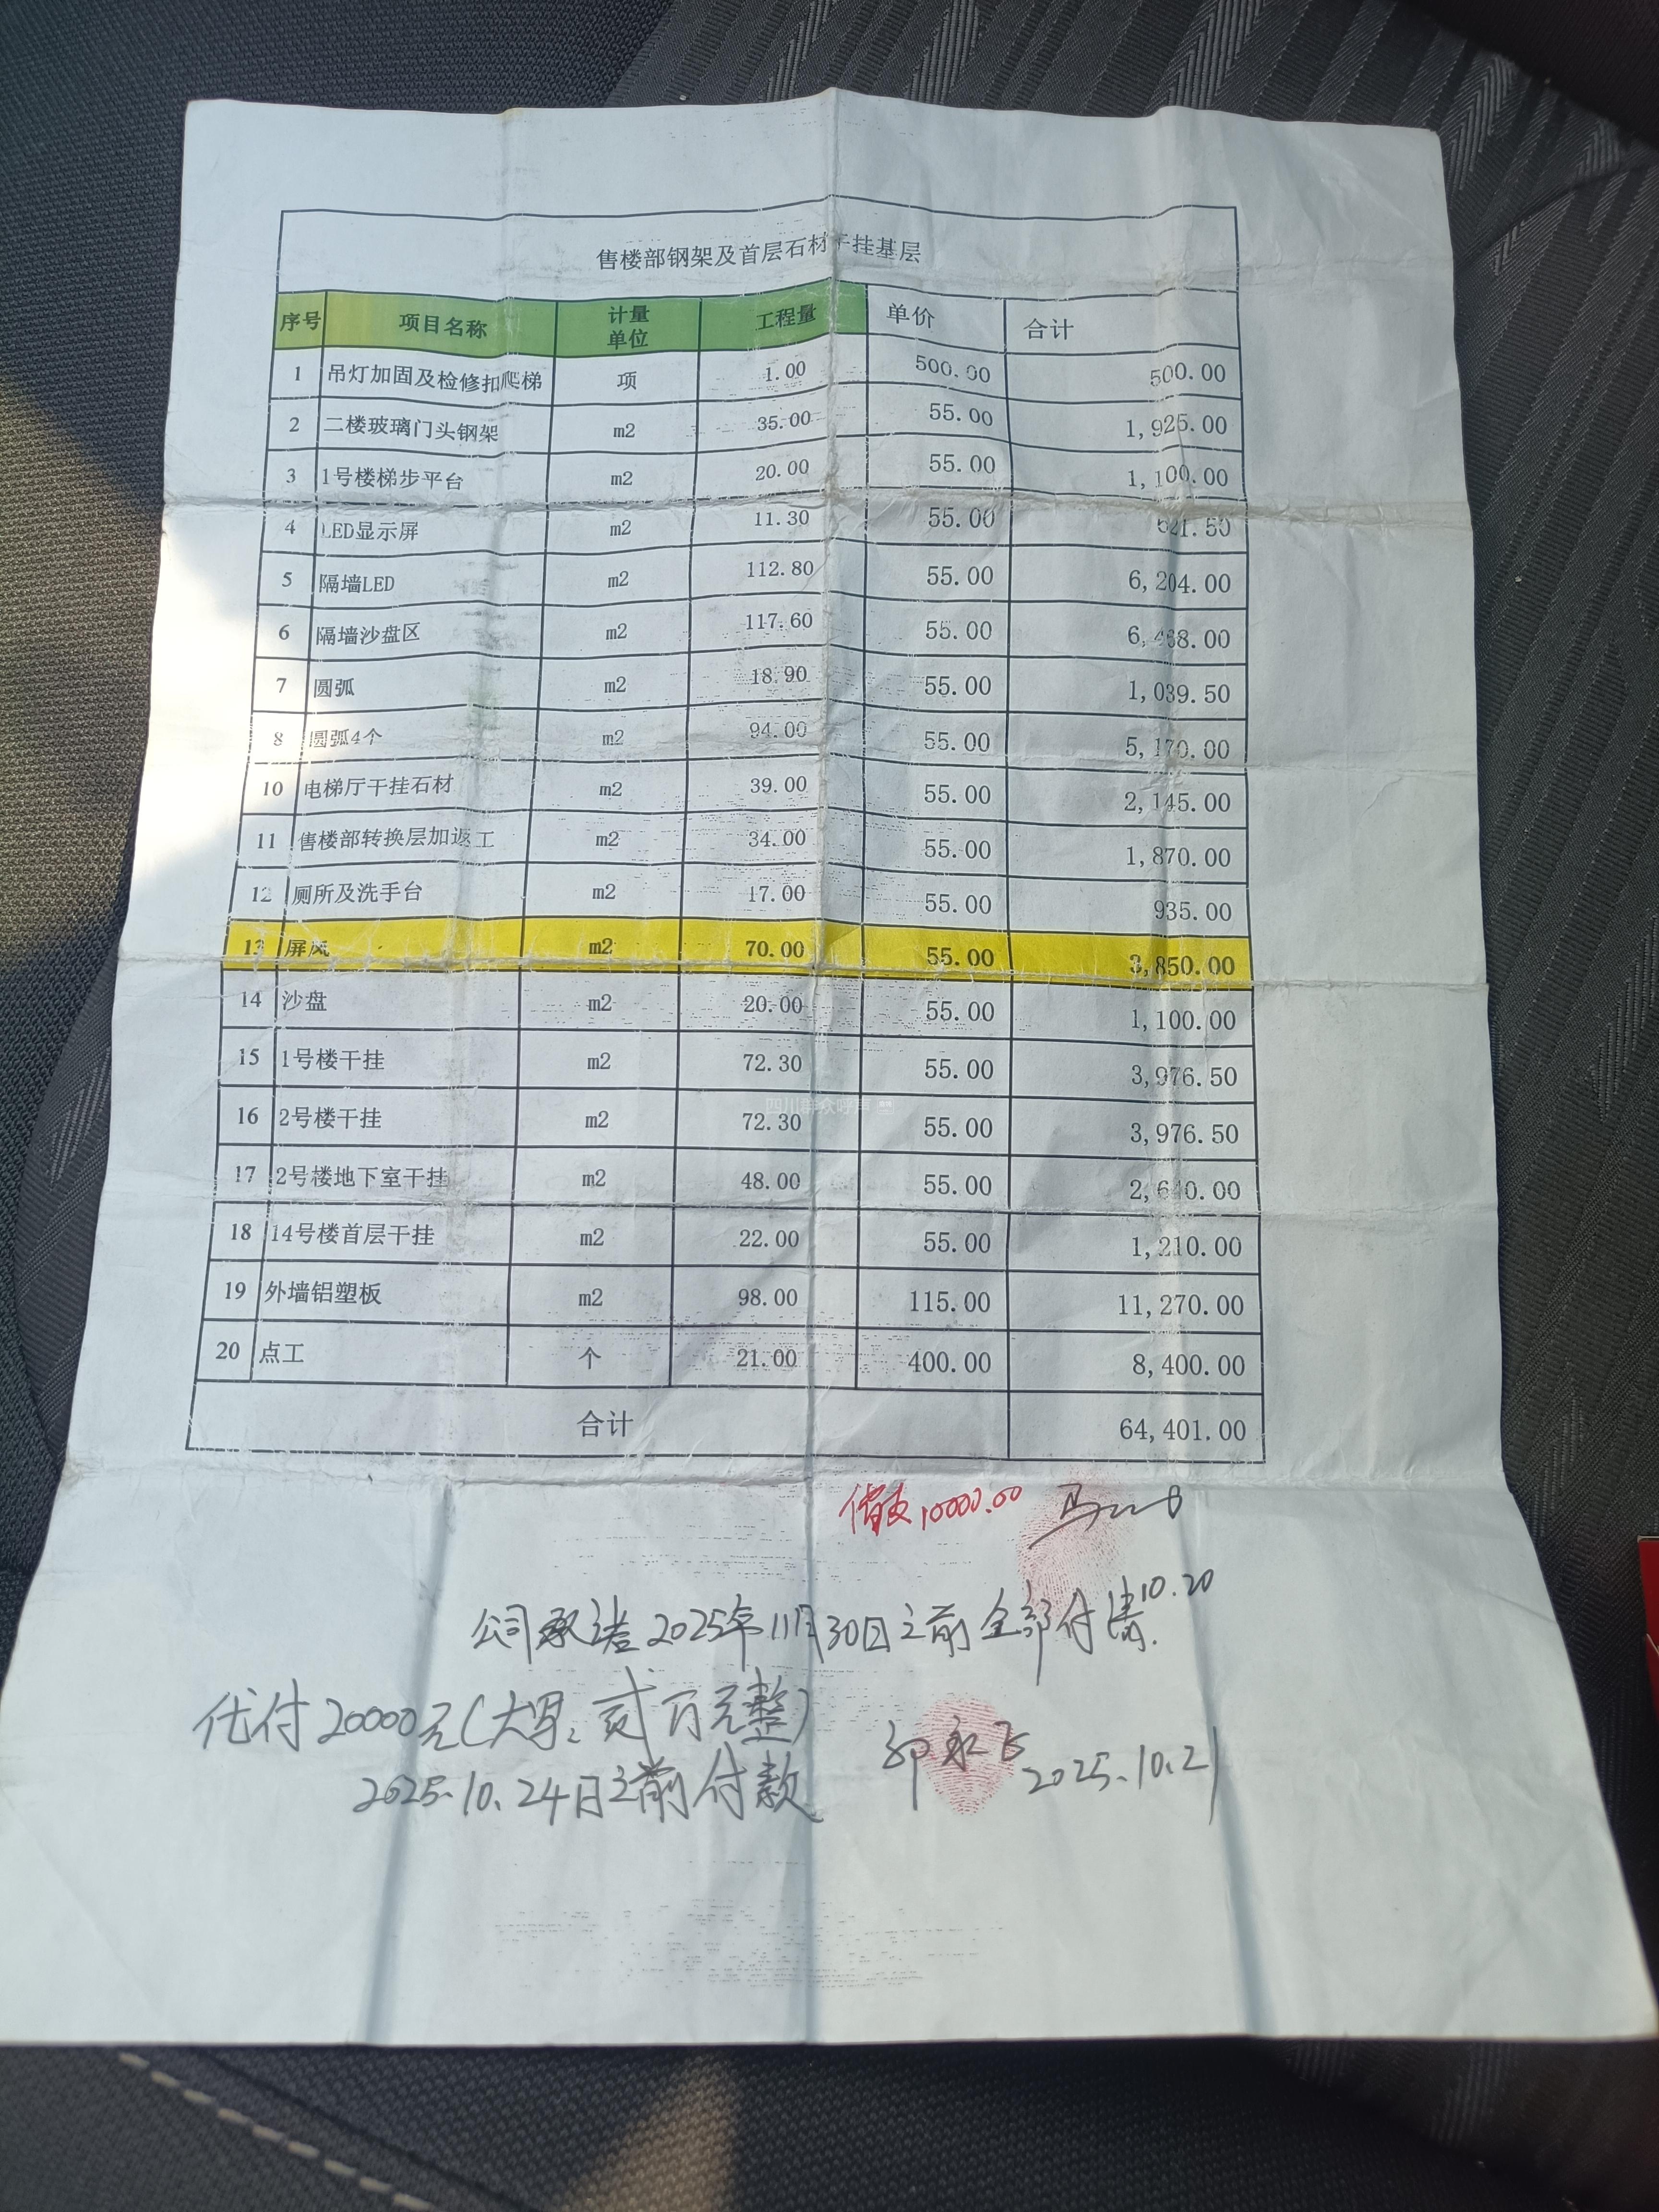 售楼部钢架及首层石材干挂基层
序号 项目名称 计量单位 工程量 单价 合计
1 吊灯加固及检修扣爬梯 项 1.00 500.00 500.00
2 二楼玻璃门头钢架 m2 35.00 55.00 1,925.00
3 1号楼梯步平台 m2 20.00 55.00 1,100.00
4 LED显示屏 m2 11.30 55.00 621.50
5 隔墙LED m2 112.80 55.00 6,204.00
6 隔墙沙盘区 m2 117.60 55.00 6,468.00
7 圆弧 m2 18.90 55.00 1,039.50
8 圆弧4个 m2 94.00 55.00 5,170.00
10 电梯厅干挂石材 m2 39.00 55.00 2,145.00
11 售楼部转换层加返工 m2 34.00 55.00 1,870.00
12 厕所及洗手台 m2 17.00 55.00 935.00
13 屏风 m2 70.00 55.00 3,850.00
14 沙盘 m2 20.00 55.00 1,100.00
15 1号楼干挂 m2 72.30 55.00 3,976.50
16 2号楼干挂 m2 72.30 55.00 3,976.50
17 2号楼地下室干挂 m2 48.00 55.00 2,640.00
18 14号楼首层干挂 m2 22.00 55.00 1,210.00
19 外墙铝塑板 m2 98.00 115.00 11,270.00
20 点工 个 21.00 400.00 8,400.00
合计 64,401.00
借支10000.00
10.20
公司承诺2025年11月30日之前全部付清.
代付20000元(大写:贰万元整)
永飞 2025.10.21
2025.10.24日之前付款
四川群众呼声